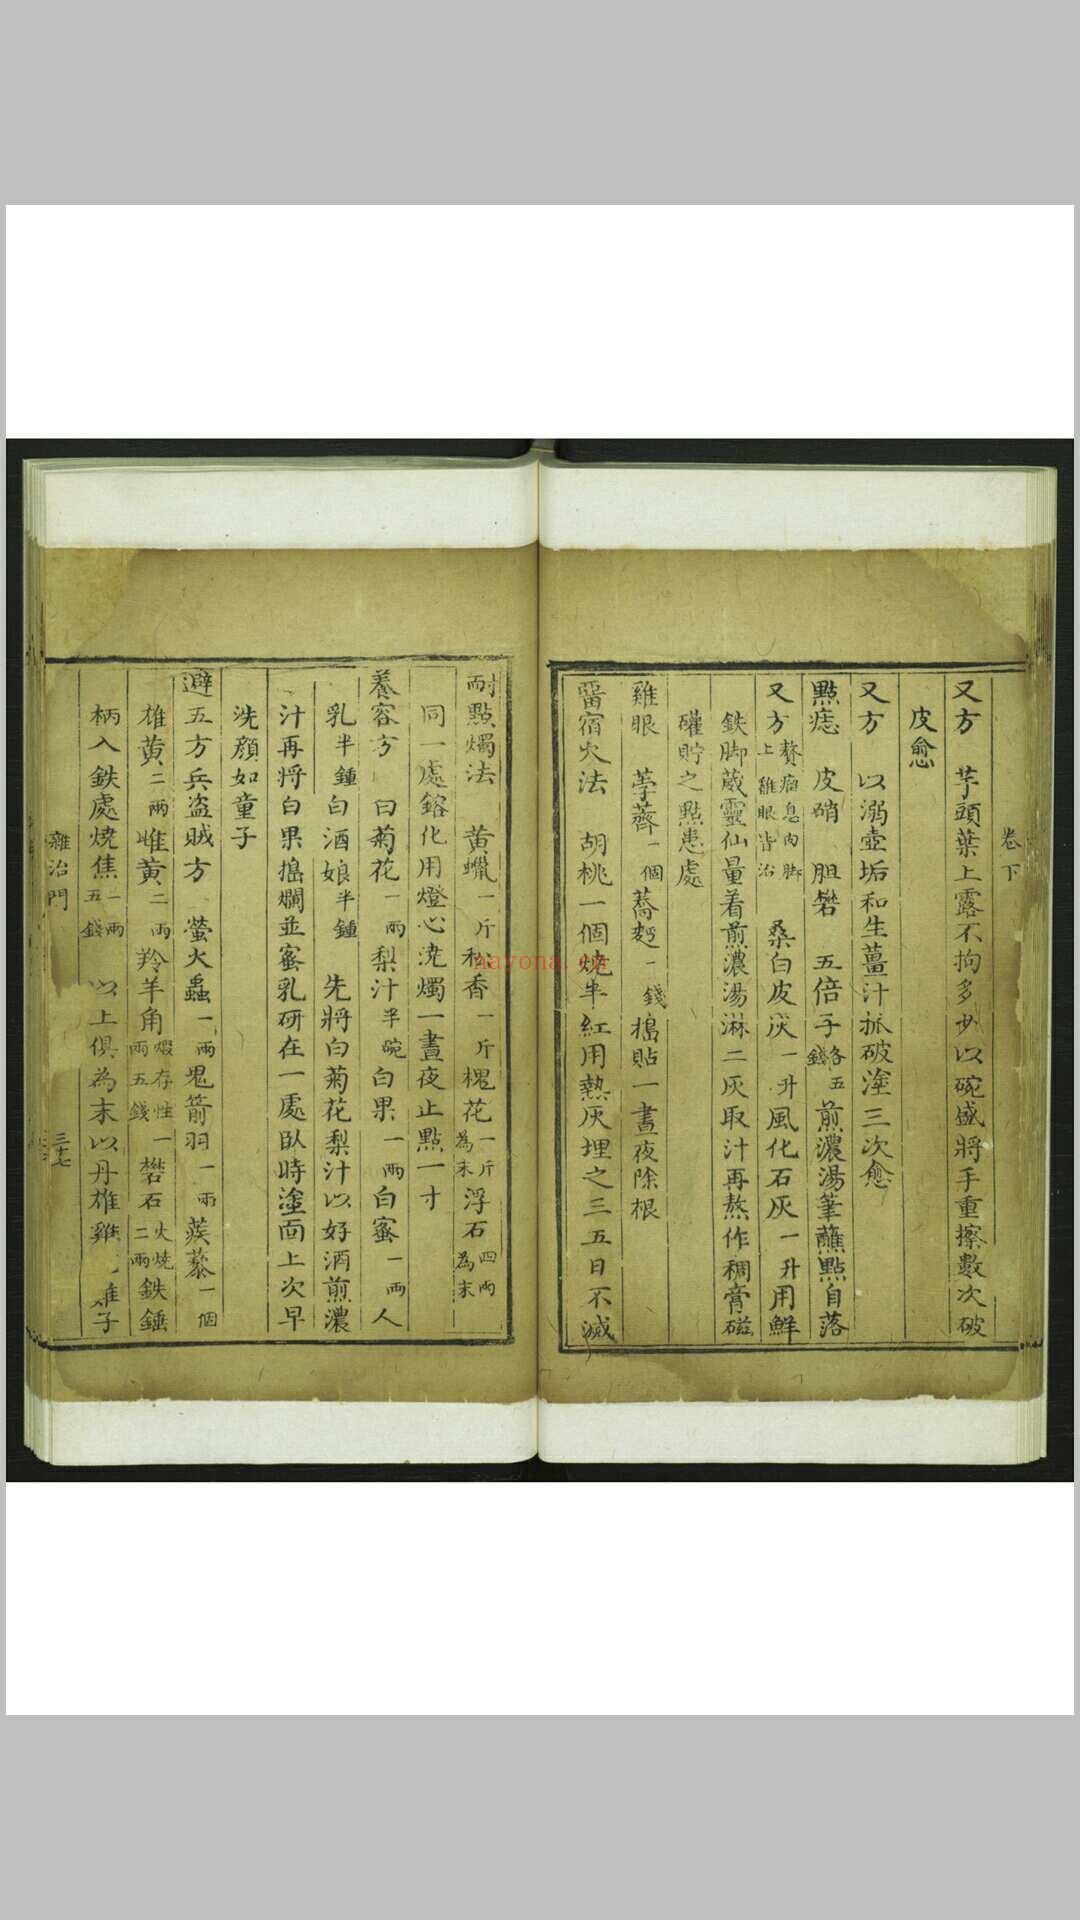 卷下
又方　芋頭葉上露不拘多少以碗盛將手重擦數次破
皮愈
又方　以溺壺垢和生薑汁抓破塗三次愈
點痣　皮硝　胆礬　五倍子各五錢　煎濃湯筆蘸點自落
又方贅瘤息肉腳上雞眼皆治　桑白皮灰一升風化石灰一升用鮮
鉄脚葳靈仙量着煎濃湯淋二灰取汁再熬作稠膏磁
礶貯之點患處
雞眼　荸薺一個蕎麪一錢搗貼一晝夜除根
畱宿火法　胡桃一個燒半紅用熱灰埋之三五日不滅
耐點燭法　黃蠟一斤　香一斤槐花一斤為末浮石四兩為末
同一處鎔化用燈心澆燭一晝夜止點一寸
養容方　白菊花一兩梨汁半碗白果一兩白蜜一兩人
乳半鍾白酒娘半鍾　先將白菊花梨汁以好酒煎濃
汁再將白果搗爛並蜜乳研在一處臥時塗面上次早
洗顏如童子
避五方兵盜賊方　螢火蟲一兩鬼箭羽一兩蒺藜一個
雄黃二兩雌黃二兩羚羊角煅存性一兩五錢礬石火燒二兩鉄錘
柄入鉄處燒焦一兩五錢　以上俱為末以丹雄雞　子
雜治門
三十七
nayona.cn